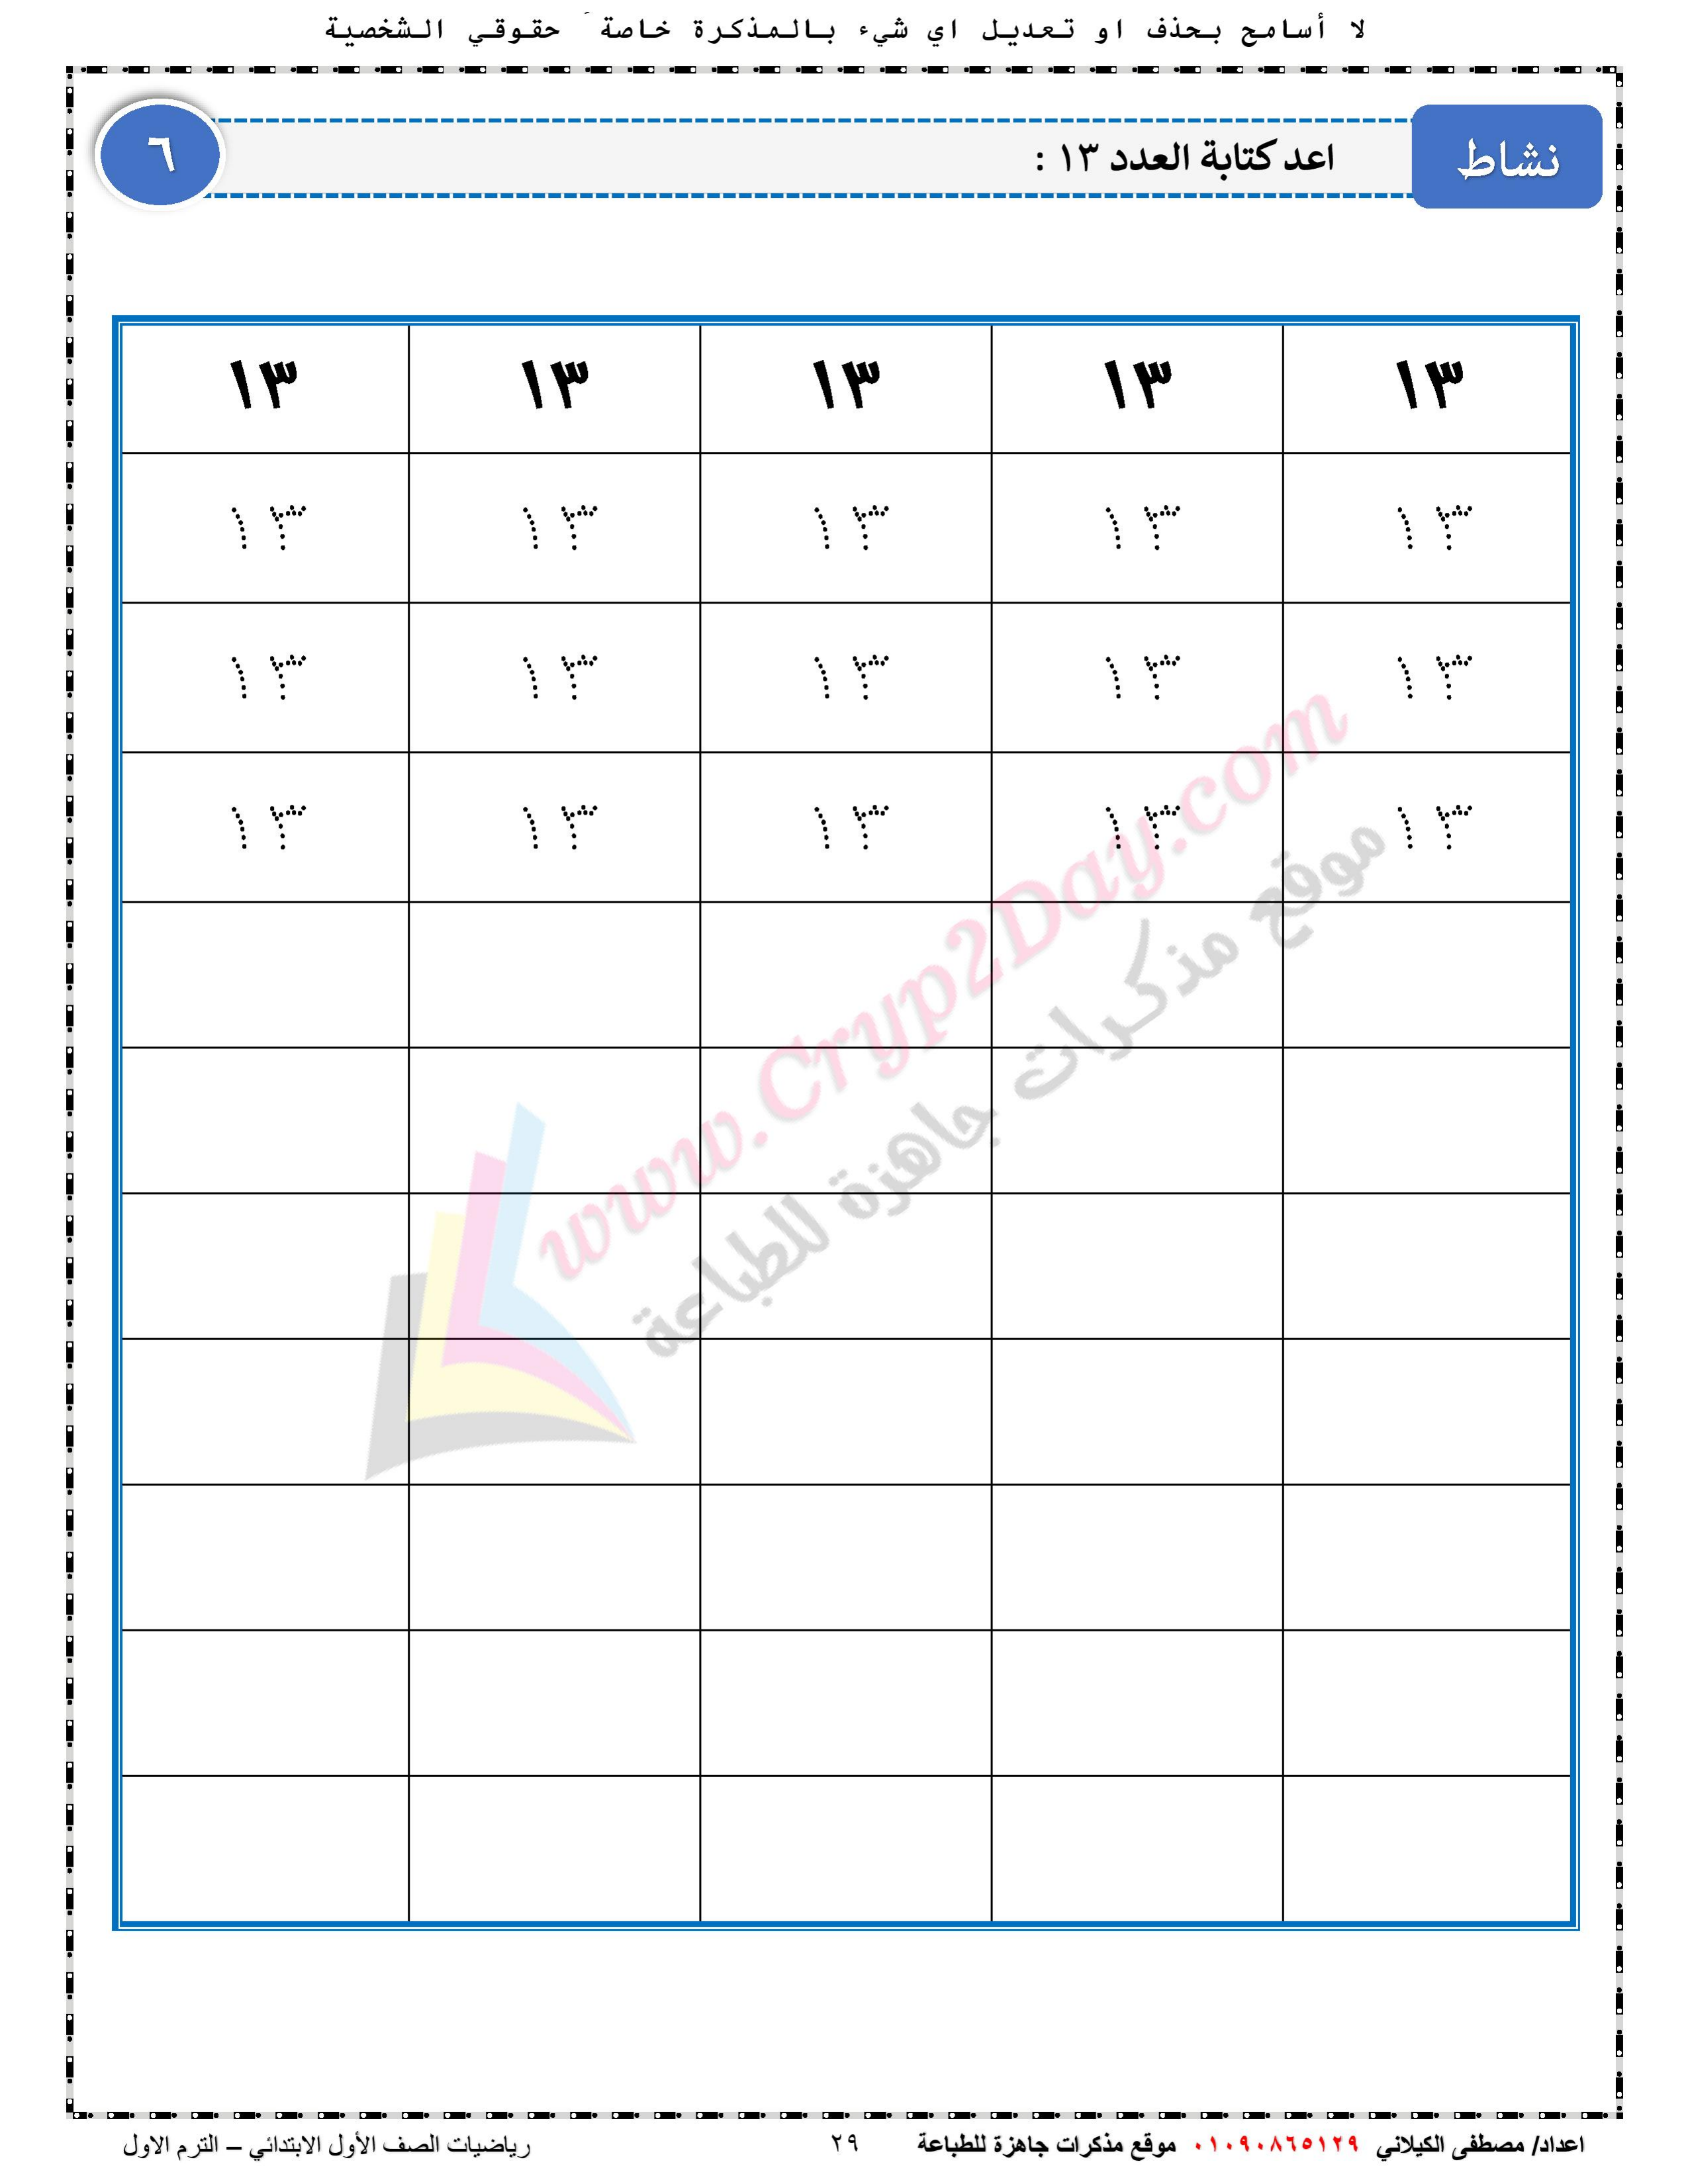 لا أسامح بحذف او تعديل اي شيء بالمذكرة خاصة ً حقوقي الشخصية
نشاط
اعد كتابة العدد ١٣ :
٦
١٣ ١٣ ١٣ ١٣ ١٣
١٣ ١٣ ١٣ ١٣ ١٣
١٣ ١٣ ١٣ ١٣ ١٣
١٣ ١٣ ١٣ ١٣ ١٣
www.Cryp2Day.com
موقع مذكرات جاهزة للطباعة
اعداد/ مصطفى الكيلاني ٠١٠٩٠٨٦٥١٢٩ موقع مذكرات جاهزة للطباعة ٢٩ رياضيات الصف الأول الابتدائي – الترم الاول